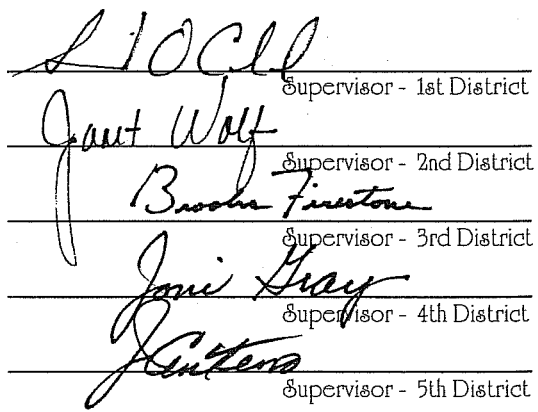 Supervisor - 1st District
Janet Wolf
Supervisor - 2nd District
Brooks Firestone
Supervisor - 3rd District
Joni Gray
Supervisor - 4th District
Supervisor - 5th District